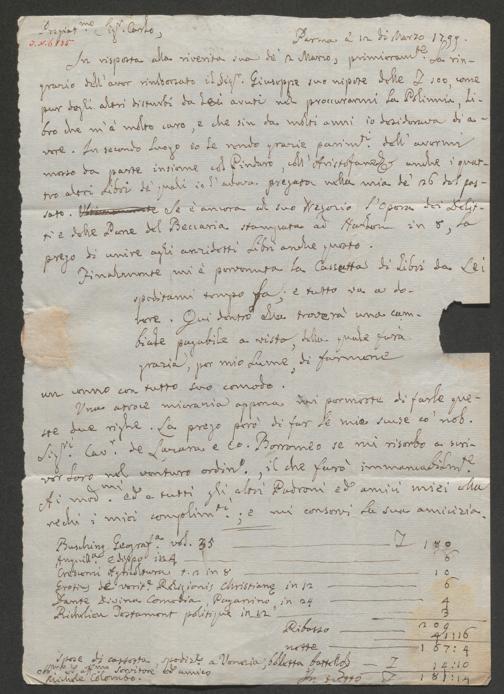 Pregiat.mo Sig.r Carlo,
Parma è 12 di Marzo 1799.
In risposta alla riverita sua de' 2 Marzo, primieram.te La rin-
grazio dell'aver rimborsato il Sig.r Giuseppe suo nipote delle L 100, come
pur degli altri disturbi da Lei avuti nel proccurarmi la Poliinnia, li-
bro che m'è molto caro, e che sin da molti anni io desiderava di a-
vere. In secondo luogo io Le rendo grazie parim.ti dell'avermi
messo da parte insieme col Pindaro, coll'Aristofane anche i quat-
tro altri Libri de' quali io l'aveva pregata nella mia de' 26 del pas-
sato. Se è ancora al suo Negozio l'Opera dei Delit-
ti e delle Pene del Beccaria stampata ad Harlem in 8, La
prego di unire agli anzidetti Libri anche questo.
Finalmente mi è pervenuta la Cassetta di Libri da Lei
speditami tempo fa; e tutto va a do-
vere. Qui dentro Ella troverà una cam-
biale pagabile a vista, della quale farà
grazia, per mio lume, di farmene
un cenno con tutto suo comodo.
Una atroce micrania appena mi permette di farle que-
ste due righe. La prego però di far le mie scuse co' nob.
Sig.ri Cav.r de Lazara e Co. Borromeo se mi riserbo a scri-
ver loro nel venturo ordin.o, il che farò immancabilm.te
Ai med.mi ed a tutti gli altri Padroni ed amici miei Ella
rechi i miei complim.ti; e mi conservi la sua amicizia.
Busching Geograf.a vol. 35 L 180
Anguill.a Edippo in 4 6
Crescenzi Agricoltura t. 2 in 8 10
Grotius de verit.e Religionis Christianæ in 12 6
Dante Divina Comedia, Paganino, in 24 4
Richelieu Testament politique in 12 3
209
Ribasso 41:16
nette 167:4
Spese di cassetta, spediz.e a Venezia, bolletta L 14:10
In tutto L 181:14
Servitore ed amico
Michele Colombo.